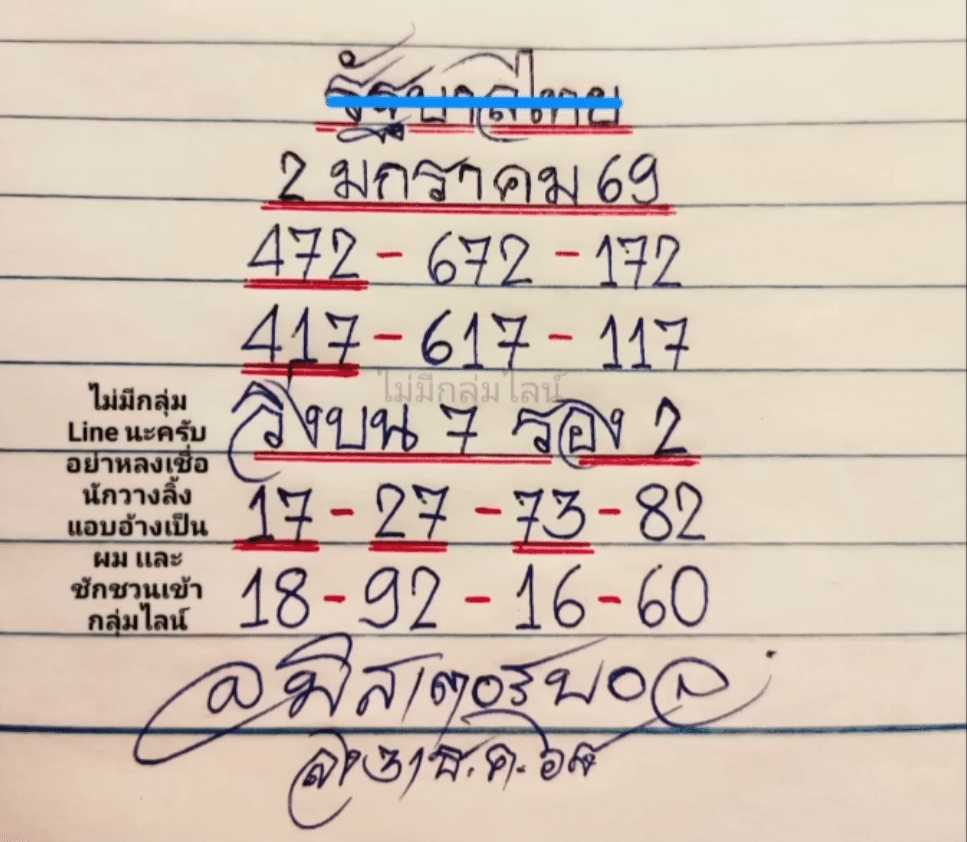 รัฐบาลไทย
2 มกราคม 69
472 - 672 - 172
417 - 617 - 117
ไม่มีกลุ่มไลน์
วิ่งบน 7 รอง 2
17 - 27 - 73 - 82
18 - 92 - 16 - 60
ไม่มีกลุ่ม
Line นะครับ
อย่าหลงเชื่อ
นักวางลิ้ง
แอบอ้างเป็น
ผม และ
ชักชวนเข้า
กลุ่มไลน์
มิสเตอร์บอล
31 ธ.ค.